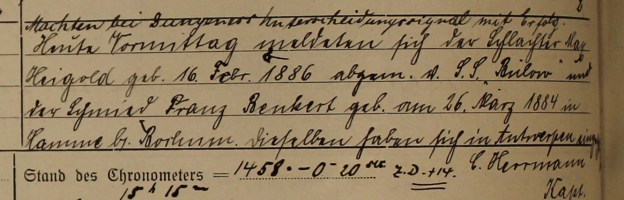 Machten bei Dungeness Unterscheidungssignal mit Erfolg.
Heute Vormittag meldeten sich der Schlachter Max
Heigold geb. 16. Febr. 1886 abgem. v. S.S. „Bülow" und
der Schmied Franz Benkert geb. am 26. März 1884 in
Hamme b/ Bochum. Dieselben haben sich in Antwerpen
Stand des Chronometers = 1458. – 0 – 20 sec Z.D. +14. C. Herrmann
15 h 15 m Kapt.